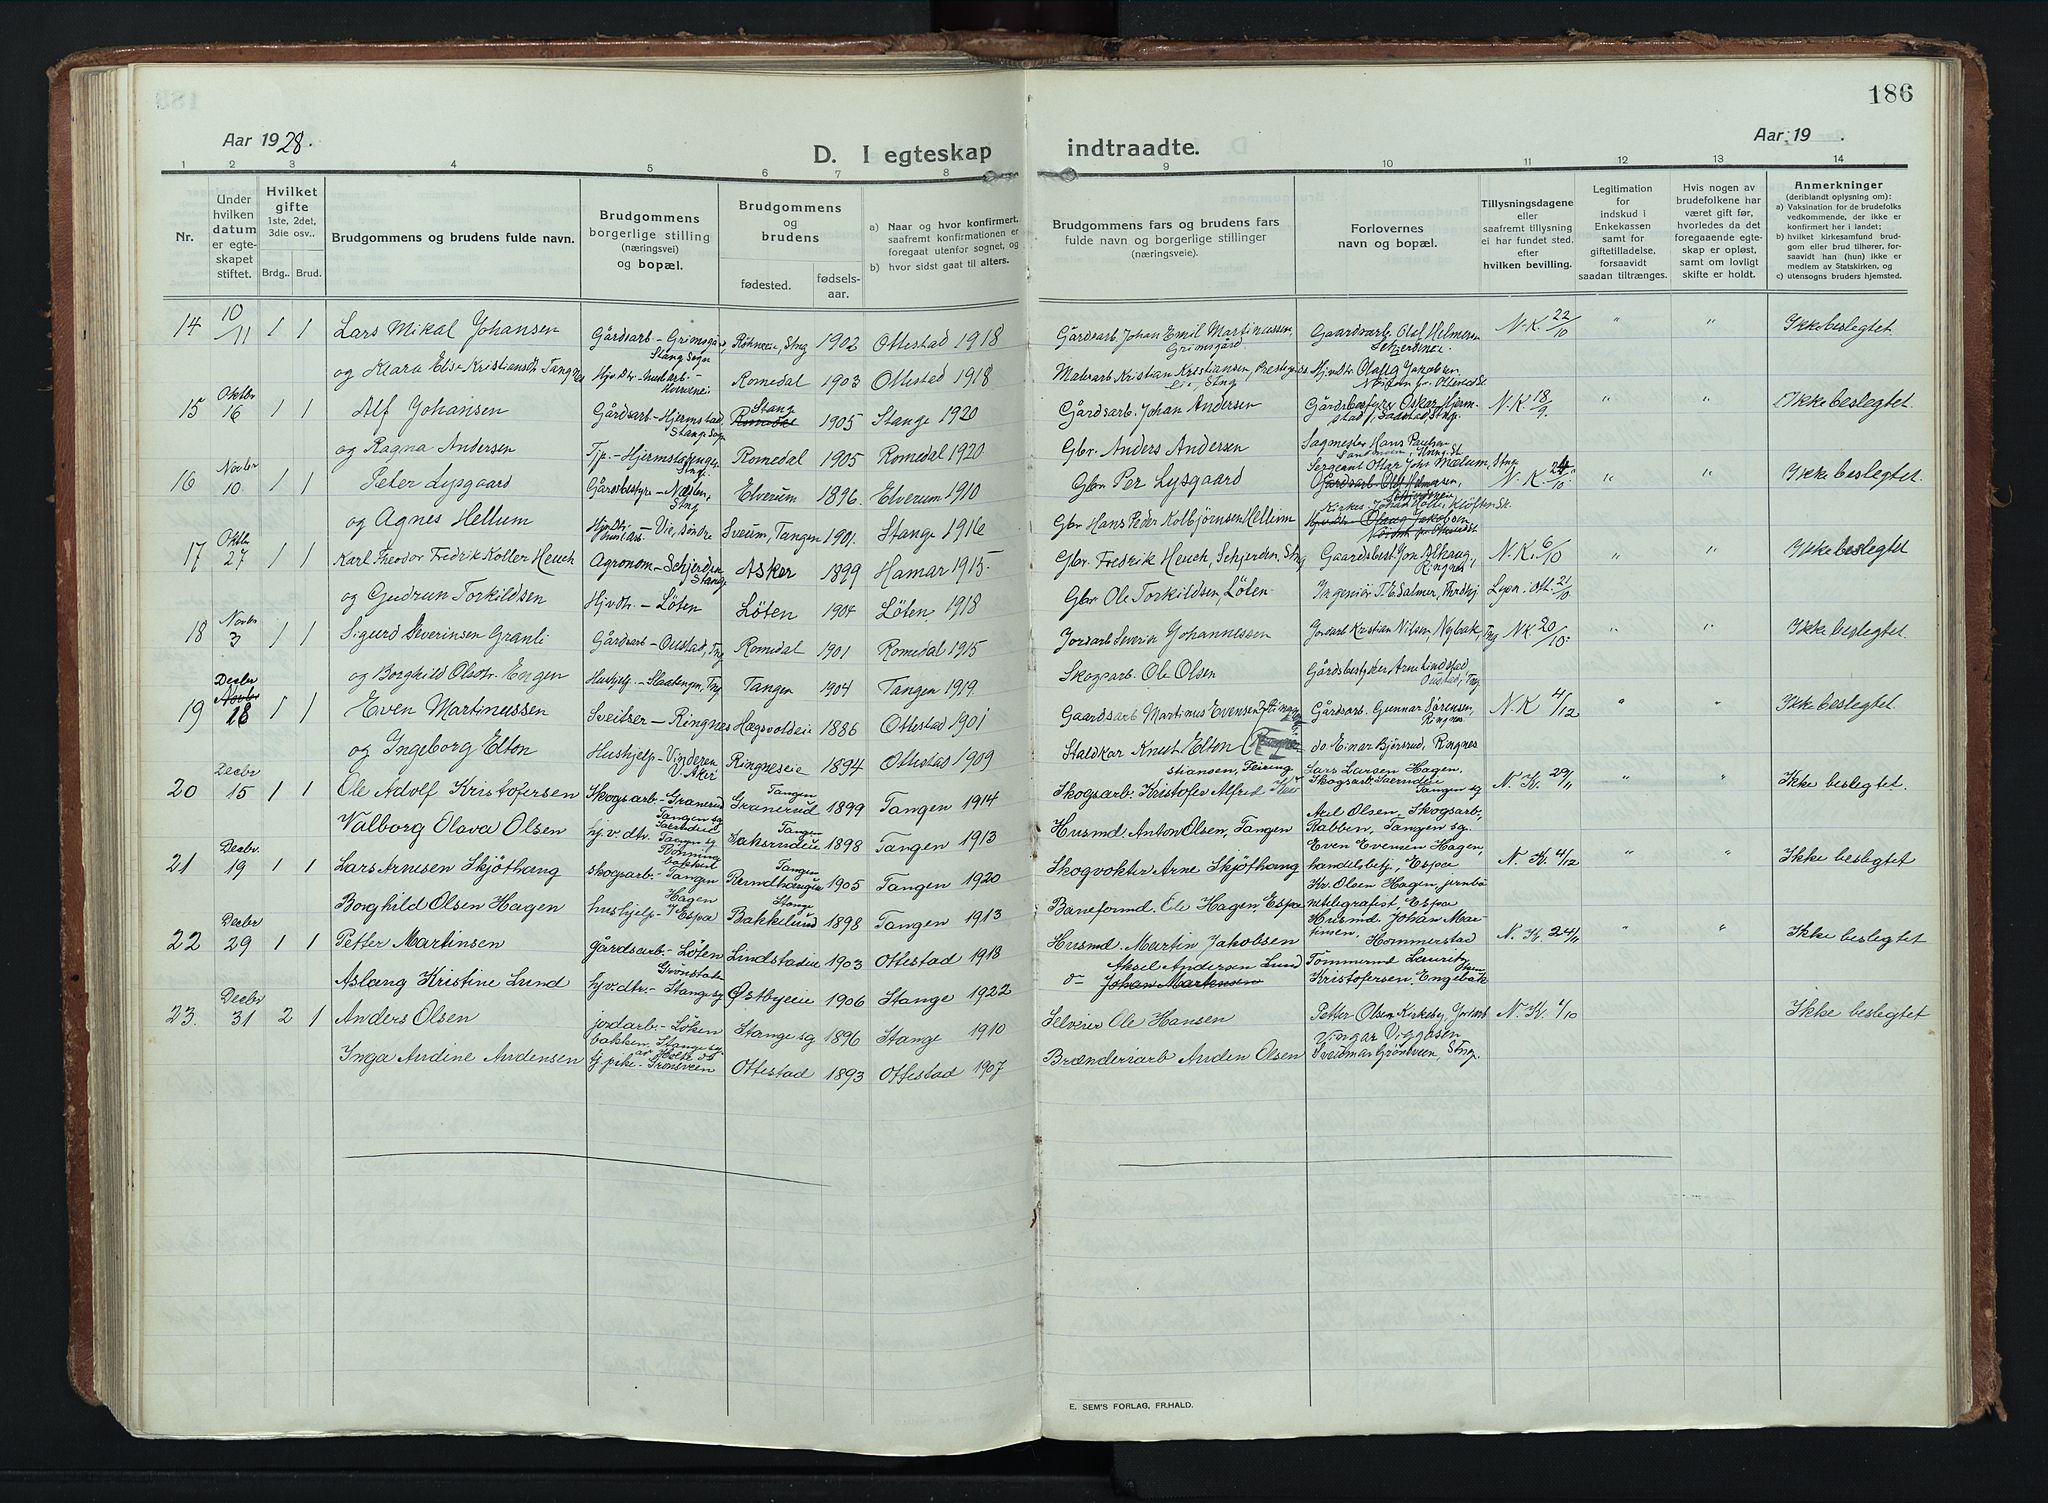 186
Aar 1928.
D. I egteskap indtraadte.
Aar 19
1 2 3 4 5 6 7 8 9 10 11 12 13 14
Nr.
Under hvilken datum er egteskapet stiftet.
Hvilket gifte 1ste, 2det, 3die osv..
Brdg.. Brud.
Brudgommens og brudens fulde navn.
Brudgommens borgerlige stilling (næringsvei) og bopæl.
Brudgommens og brudens
fødested. fødselsaar.
a) Naar og hvor konfirmert, saafremt konfirmationen er foregaat utenfor sognet, og
b) hvor sidst gaat til alters.
Brudgommens fars og brudens fars fulde navn og borgerlige stillinger (næringsveie).
Forlovernes navn og bopæl.
Tillysningsdagene eller saafremt tillysning ei har fundet sted. efter hvilken bevilling.
Legitimation for indskud i Enkekassen samt for giftetilladelse, forsaavidt saadan tiltrænges.
Hvis nogen av brudefolkene har været gift før, hvorledes da det foregaaende egteskap er opløst, samt om lovligt skifte er holdt.
Anmerkninger (deriblandt oplysning om):
a) Vaksination for de brudefolks vedkommende, der ikke er konfirmert her i landet;
b) hvilket kirkesamfund brudgom eller brud tilhører, forsaavidt han (hun) ikke er medlem av Statskirken, og
c) utensogns bruders hjemsted.
14 10/11 1 1 Lars Mikal Johansen Gårdsarb - Grimsgård, Stang Sogn Røhneeie, Stng 1902 Ottestad 1918 Gårdsarb Johan Emil Martinussen, Grimsgård Gaardsarb Olaf Helmersen N.K. 22/10 " " Ikke beslegtet
og Klara Else Kristiansdtr Tangnes Romedal 1903 Ottestad 1918 Kristian Kristiansen Hjvdtr. Olaug Jakobsen
15 Oktbr 16 1 1 Alf Johansen Gårdsarb - Hjermstad, Stange Sogn Stang Romedal 1905 Stange 1920 Gårdsarb. Johan Andersen Gårdsbestyrer Oskar Hjermstad N.K. 18/9 " " Ikke beslegtet.
og Ragna Andersen Tjp. - Romedal 1905 Romedal 1920 Gbr. Anders Andersen Sagmester Hans Paulsen
16 Novbr 10 1 1 Peter Lysgaard Gårdsbestyr - Næsten, Stng Elverum 1896 Elverum 1910 Gbr Per Lysgaard Sergeant Ottar Johs Mælum, Stng N.K. 24/10. " " Ikke beslegtet.
og Agnes Hellum Sveum, Tangen 1901 Stange 1916 Gbr Hans Peder Kolbjørnsen Hellum
17 Oktbr 27 1 1 Karl Theodor Fredrik Koller Heuch Agronom - Schjerden Stange Asker 1899 Hamar 1915. Gbr. Fredrik Heuch, Schjerden, Stng Gaardsbest. Jon Alhaug, Ringnes N.K. 6/10 " " Ikke beslegtet
og Gudrun Torkildsen Hjvdtr. - Løten Løten 1904 Løten. 1918 Gbr. Ole Torkildsen, Løten Ingeniør T. E. Dalmer, Trdhj. 21/10
18 Novbr 3 1 1 Sigurd Severinsen Granli Gårdsarb - Oustad, Tng Romedal 1901 Romedal 1915 Jordarb Severin Johannessen Jordarb Kristian Nilsen, Nybak, Tng N.K. 20/10. " " Ikke beslegtet.
og Borghild Olsdtr. Engen Hushjelp. - Slaatengen, Tng Tangen 1904 Tangen 1919 Skogsarb. Ole Olsen Gårdsbestyrer Arne Lindstad Oustad, Tng
19 Decbr Novbr 18 1 1 Even Martinussen Sveitser - Ringnes Hægsvoldeie 1886 Ottestad 1901 Gaardsarb Martinus Evensen Gårdsarb. Gunnar Sørensen, Ringnes N.K. 4/12 " " Ikke beslegtet.
og Ingeborg Elton Hushjelp - Vinderen V. Aker Ringneseie 1894 Ottestad 1909 Staldkar Knut Elton do Einar Bjørsrud, Ringnes
20 Decbr 15 1 1 Ole Adolf Kristofersen Skogsarb. - Granerud Tangen sg Tangen Granerud 1899 Tangen 1914 Skogsarb. Kristofer Alfred Kristiansen, Feiring Lars Larsen Hagen, Skogsarb. Tangen sg N.K. 29/11 " " Ikke beslegtet.
Valborg Olava Olsen hj.v.dtr. Tangen sg Tangen Saksrudeie 1898 Tangen 1913 Husmd. Anton Olsen, Tangen Axel Olsen, Skogsarb. Rabben, Tangen sg.
21 Decbr 19 1 1 Lars Arnesen Skjøthaug skogsarb. - Tangen Tangen 1905 Tangen 1920 Skogvokter Arne Skjøthaug Even Evensen Hagen, handelsbetj., Espa N.K. 4/12 " " Ikke beslegtet
Borghild Olsen Hagen hushjelp - Hagen Espa Stange Bakkelund 1898 Tangen 1913 Baneformd. Ole Hagen, Espa Kr. Olsen Hagen, jernbanetelegrafist, Espa
22 Decbr 29 1 1 Petter Martinsen gårdsarb. - Løten Lindstadeie 1903 Ottestad 1918 Husmd. Martin Jakobsen Husmd. Johan Martinsen, Hommerstad N.K. 24/11 " " Ikke beslegtet
Aslaug Kristine Lund hj.v.dtr. - Stange sg Østbyeie 1906 Stange 1922 Aksel Andersen Lund Johan Martensen Tømmermd Laurits Kristofersen, Engebak
23. Decbr 31 2 1 Anders Olsen jordarb. - Stange sg. Stange sg 1896 Stange 1910 Selveier Ole Hansen Petter Olsen Kirkeby, Jordarb N.K. 1/10 Ikke beslegtet
Inga Andine Andersen tj. pike - Ottestad 1893 Ottestad 1907 Brænderiarb Anders Olsen Vingar Viggosen
E. SEM'S FORLAG, FR.HALD.